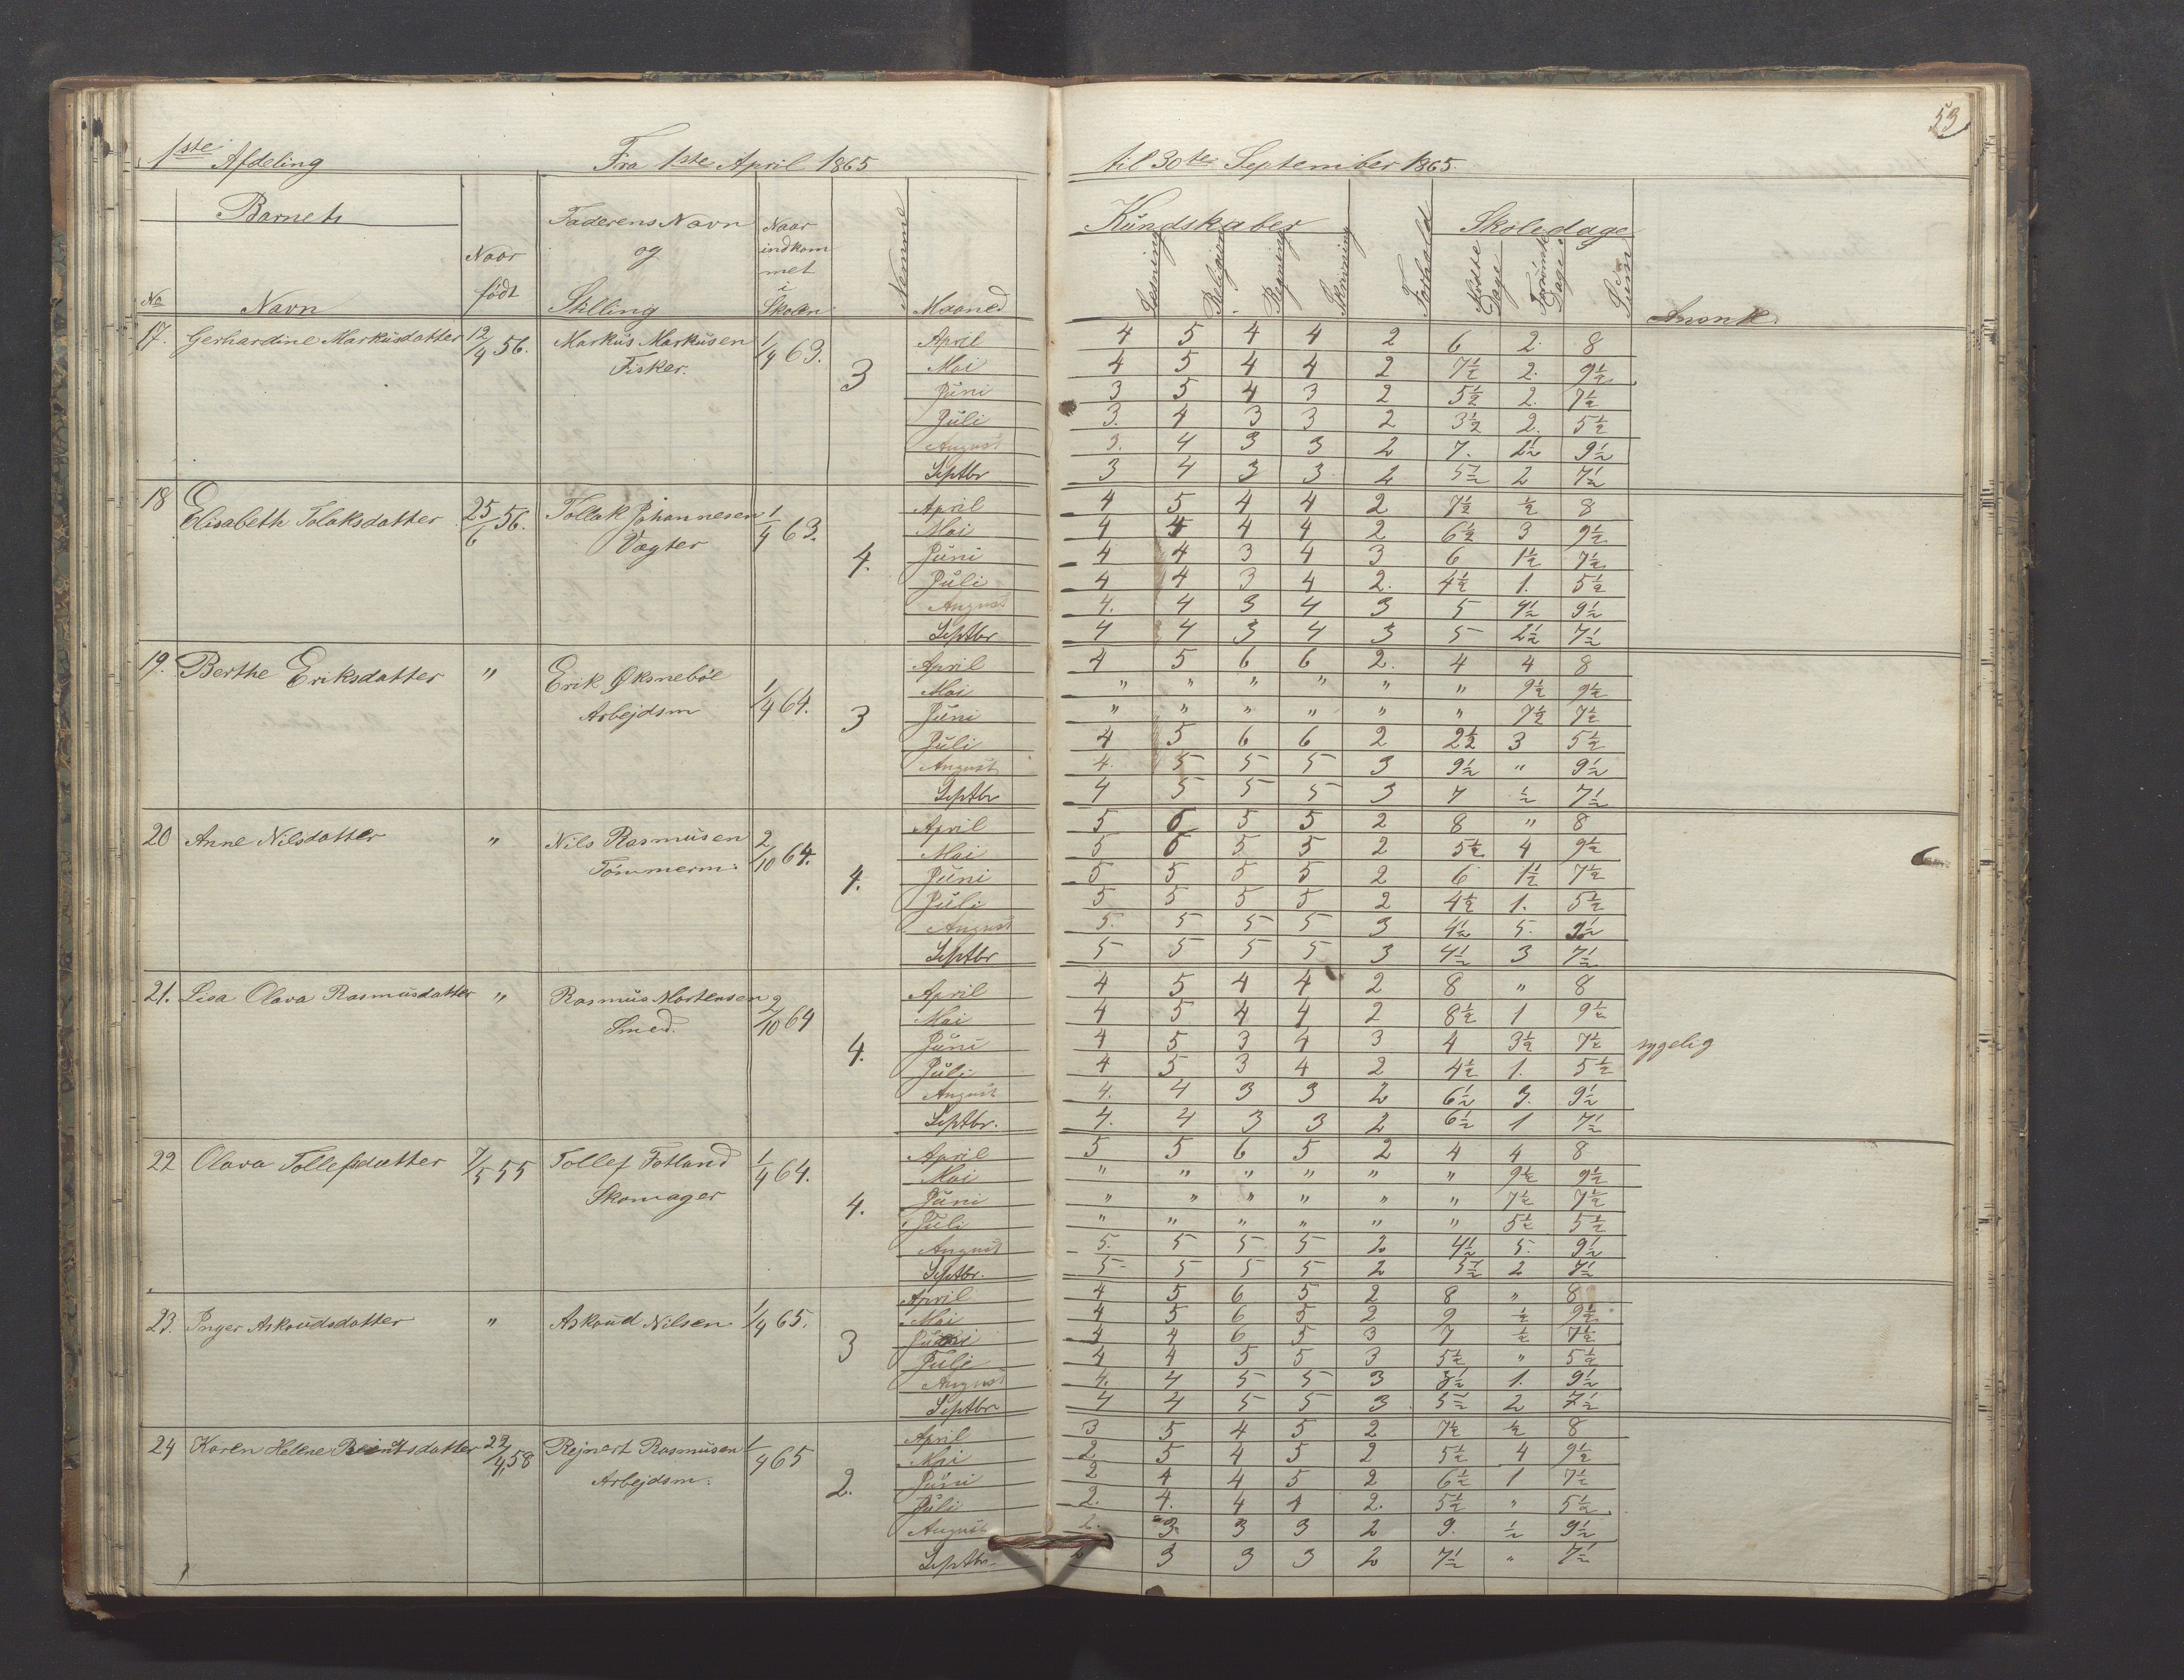 53
1ste Afdeling Fra 1ste April 1865 til 30te September 1865.
Barnets Naar født Faderens Navn og Stilling Naar indkommet i Skolen Nemme Maaned Kundskaber Forhold Skoledage Anmk.
No Navn Læsning Religion Regning Skrivning Mødte Dage Forsømte Dage Sum
17. Gerhardine Markusdatter 12/4 56. Markus Markusen 1/4 63. 3 April 4 5 4 4 2 6 2. 8
Fisker. Mai 4 5 4 4 2 7½ 2. 9½
Juni 3 5 4 3 2 5½ 2. 7½
Juli 3. 4 3 3 2 3½ 2. 5½
August 3. 4 3 3 2 7. 2½ 9½
Septbr 3 4 3 3 2 5½ 2 7½
18 Elisabeth Tolaksdatter 25/6 56. Tollak Johannesen 1/4 63. 4. April 4 5 4 4 2 7½ ½ 8
Vægter Mai 4 4 4 4 2 6½ 3 9½
Juni 4 4 3 4 3 6 1½ 7½
Juli 4 4 3 4 2. 4½ 1. 5½
August 4. 4 3 4 3 5 4½ 9½
Septbr 4 4 3 4 3 5 2½ 7½
19. Berthe Eriksdatter " Erik Øksnebøe 1/4 64. 3 April 4 5 6 6 2. 4 4 8
Arbejdsm Mai " " " " " " 9½ 9½
Juni " " " " " " 7½ 7½
Juli 4 5 6 6 2 2½ 3 5½
August 4. 5 5 5 3 9½ " 9½
Septbr 4 5 5 5 3 7 ½ 7½
20 Anne Nilsdatter " Nils Rasmusen 2/10 64. 4. April 5 6 5 5 2 8 " 8
Tømmerm: Mai 5 6 5 5 2 5½ 4 9½
Juni 5 5 5 5 2 6 1½ 7½
Juli 5 5 5 5 2 4½ 1. 5½
August 5. 5 5 5 3 4½ 5. 9½
Septbr 5 5 5 5 3 4½ 3 7½
21. Lisa Olava Rasmusdatter " Rasmus Mortensen 2/10 64 4. April 4 5 4 4 2 8 " 8
Smed. Mai 4 5 4 4 2 8½ 1 9½
Juni 4 5 3 4 3 4 3½ 7½ sygelig
Juli 4 5 3 4 2 4½ 1. 5½
August 4. 4 3 3 2 6½ 3. 9½
Septbr. 4. 4 3 3 2 6½ 1 7½
22 Olava Tollefsdatter 7/5 55 Tollef Fotland 1/4 64. 4. April 5 5 6 5 2 4 4 8
Skomager Mai " " " " " " 9½ 9½
Juni " " " " " " 7½ 7½
Juli " " " " " " 5½ 5½
August 5. 5 5 5 2 4½ 5. 9½
Septbr. 5 5 5 5 2 5½ 2 7½
23. Inger Askoudsdatter " Askoud Nilsen 1/4 65. 3 April 4 5 6 5 2 8 " 8
Mai 4 5 6 5 2 9 ½ 9½
Juni 4 4 6 5 3 7 ½ 7½
Juli 4 4 5 5 3 5½ " 5½
August 4. 4 5 5 3 8½ 1. 9½
Septbr 4 4 5 5 3 5½ 2 7½
24 Karen Helene Reinertsdatter 22/4 58 Rejnert Rasmusen 1/4 65 2. April 3 5 4 5 2 7½ ½ 8
Arbejdsm. Mai 2. 5 4 5 2 5½ 4 9½
Juni 2 4 4 5 2 6½ 1 7½
Juli 2. 4. 4 4 2. 5½ " 5½
August 2. 3. 3 3 2 9. ½ 9½
Septbr. 2 3 3 3 2 7½ " 7½